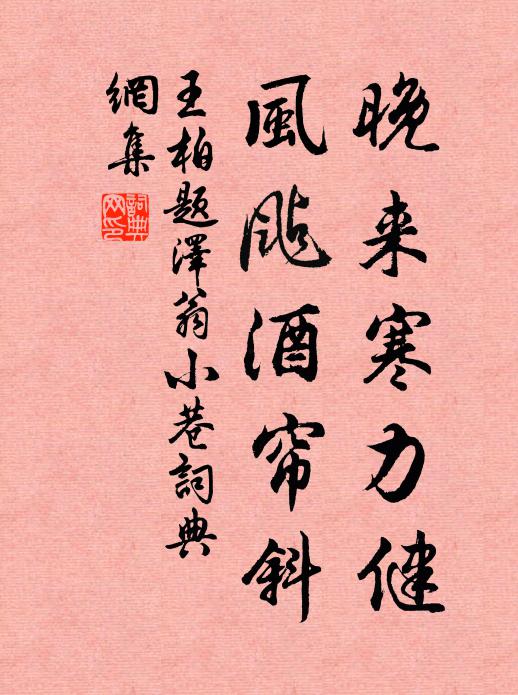 晚来寒力健
風飐酒帘斜
王柏題澤翁小巷詞典
網集
詞典網印